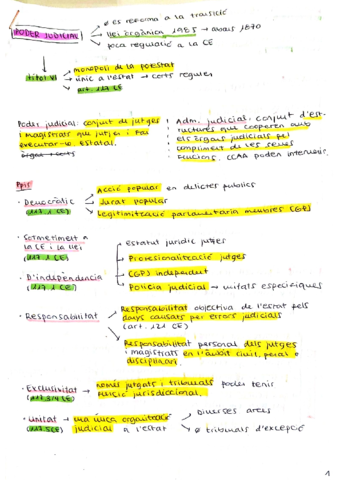 PODER JUDICIAL
→ ∅ es reforma a la transició
→ llei orgànica 1985 → abans 1870
→ poca regulació a la CE
títol VI
→ monopoli de la potestat
→ únic a l'estat → corts regulen
→ art. 117 CE
Poder judicial: conjut de jutges
i magistrats que jutjen i fan
executar-ho. Estatal.
Òrgans → corts
Adm. judicial: conjut d'est-
ructures que cooperen amb
els òrgans judicials pel
compliment de les seves
funcions. CCAA poden intervenir.
Ppis
· Democràtic
(117.1 CE)
→ Acció popular en delictes públics
→ Jurat popular
→ Legitimització parlamentària membres CGPJ
· Sotmetiment a
la CE i la llei
(117.1 CE)
· D'independència
(117.1 CE)
→ Estatut jurídic jutges
→ Professionalització jutges
→ CGPJ independent
→ Policia judicial → unitats específiques
· Responsabilitat
→ Responsabilitat objectiva de l'estat pels
danys causats per errors judicials
(art. 121 CE)
→ Responsabilitat personal dels jutges
i magistrats en l'àmbit civil, penal o
disciplinari.
· Exclusivitat → només jutjats i tribunals poden tenir
(117.3/4 CE) funció jurisdiccional.
· Unitat → una única organització
(117.5 CE) judicial a l'estat
→ diverses àrees
→ ∅ tribunals d'excepció
1